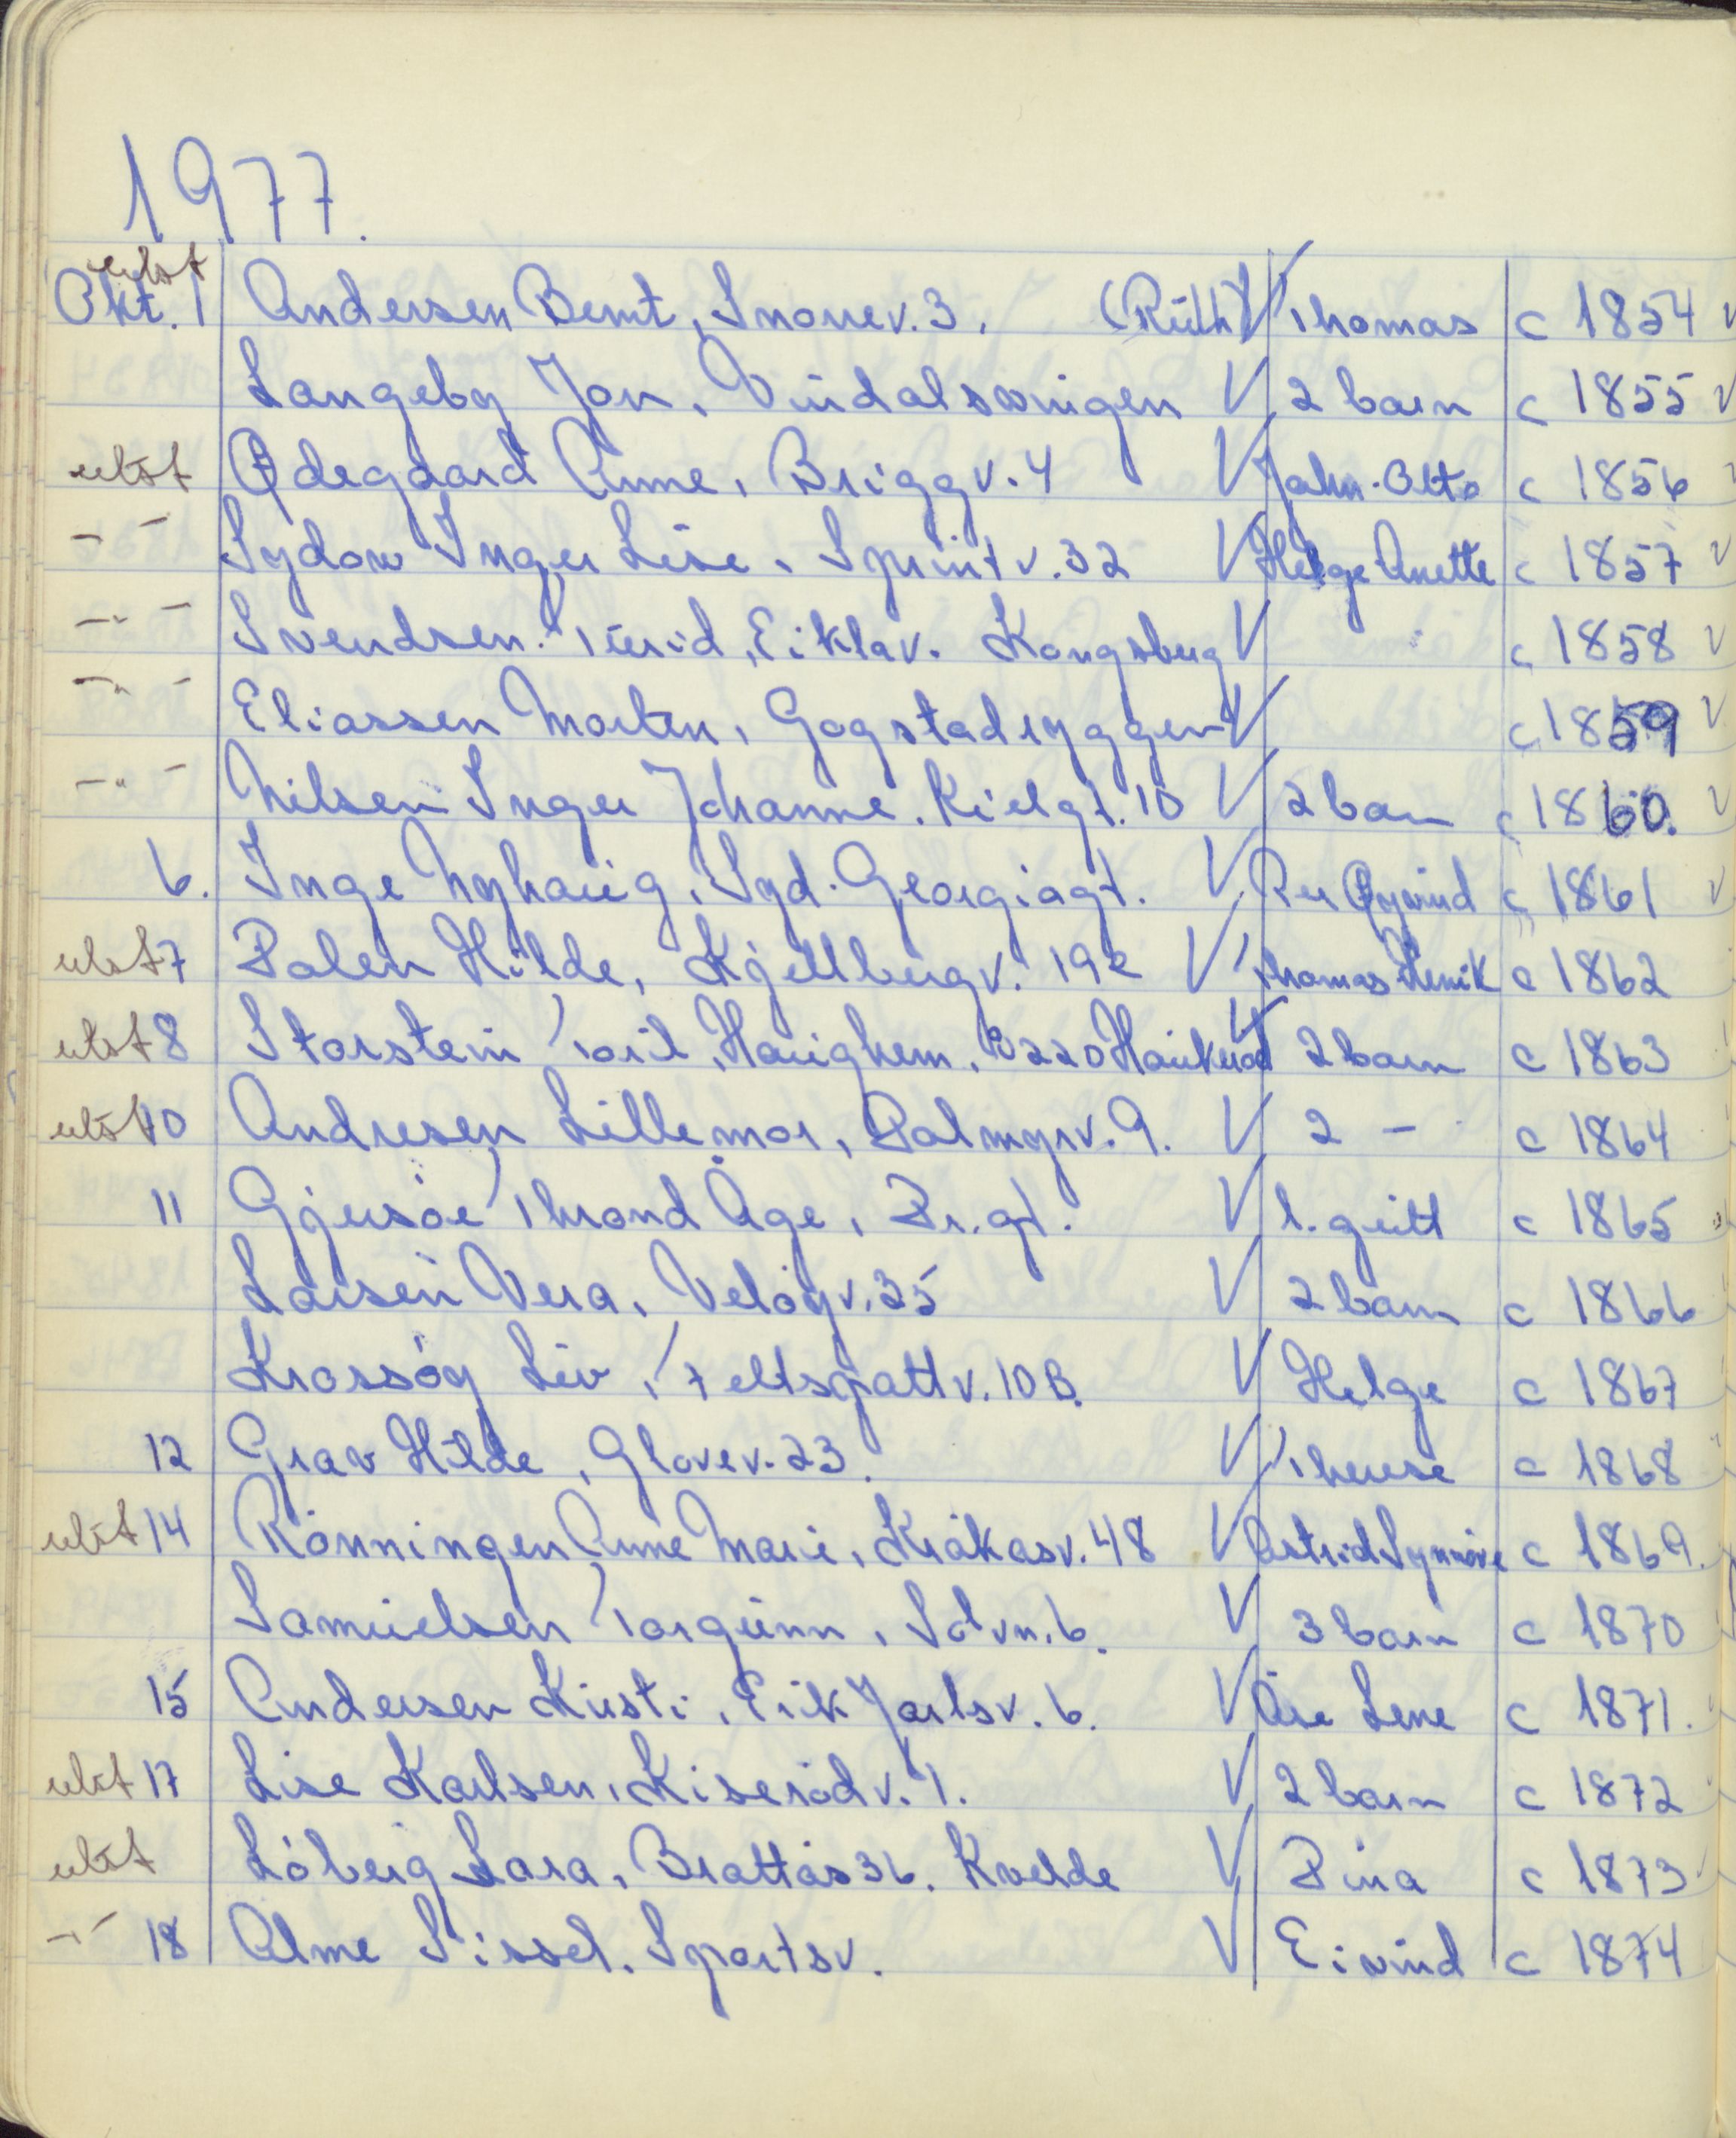 1977.
utst
Okt. 1 Andersen Bernt, Snorrev. 3. (Ruth) V Thomas c 1854 V
Langeby Jon, Vindalsvingen V 2 barn c 1855 V
utst Ødegaard Anne, Briggv. 4 V John-Otto c 1856 V
- - Sydow Inger Lise, Sprintv. 32 V Helge Anette c 1857 V
-"- Svendsen Turid, Eiklav. Kongsberg V c 1858 V
-"- Eliassen Morten, Gogstadryggen V c 1859 V
-"- Nilsen Inger Johanne. Kielgt. 10 V 2 barn c 1860. V
6. Inge Nyhaug, Syd. Georgiagt. V Per Øyvind c 1861 V
utst 7 Palen Hilde, Kjellbergv. 19 V Thomas Henrik c 1862
utst 8 Storstein Toril, Haughem, 3220 Haukerød V 2 barn c 1863
utst 10 Andresen Lillemor, Palmyrv. 9. V 2 - c 1864
11 Gjersøe Thrond Åge, Pr.gt. V c 1865
Larsen Vera, Veløyv. 35 V 2 barn c 1866
Krossøy Liv, Feltspattv. 10 B. V Helge c 1867
12 Grav Hilde, Glovev. 23. V Therese c 1868
utst 14 Rønningen Anne Marie, Kråkåsv. 48 V Astrid Synnøve c 1869.
Samuelsen Torgunn, Solvn. 6. V 3 barn c 1870
15 Andersen Kirsti, Eirik Jarlsv. 6. V Åse Lene c 1871.
utst 17 Lise Karlsen, Kiserødv. 1. V 2 barn c 1872
utst Løberg Lara, Brattås 36. Kvelde V Pina c 1873
-"- 18 Alme Sissel. Sportsv. V Eivind c 1874